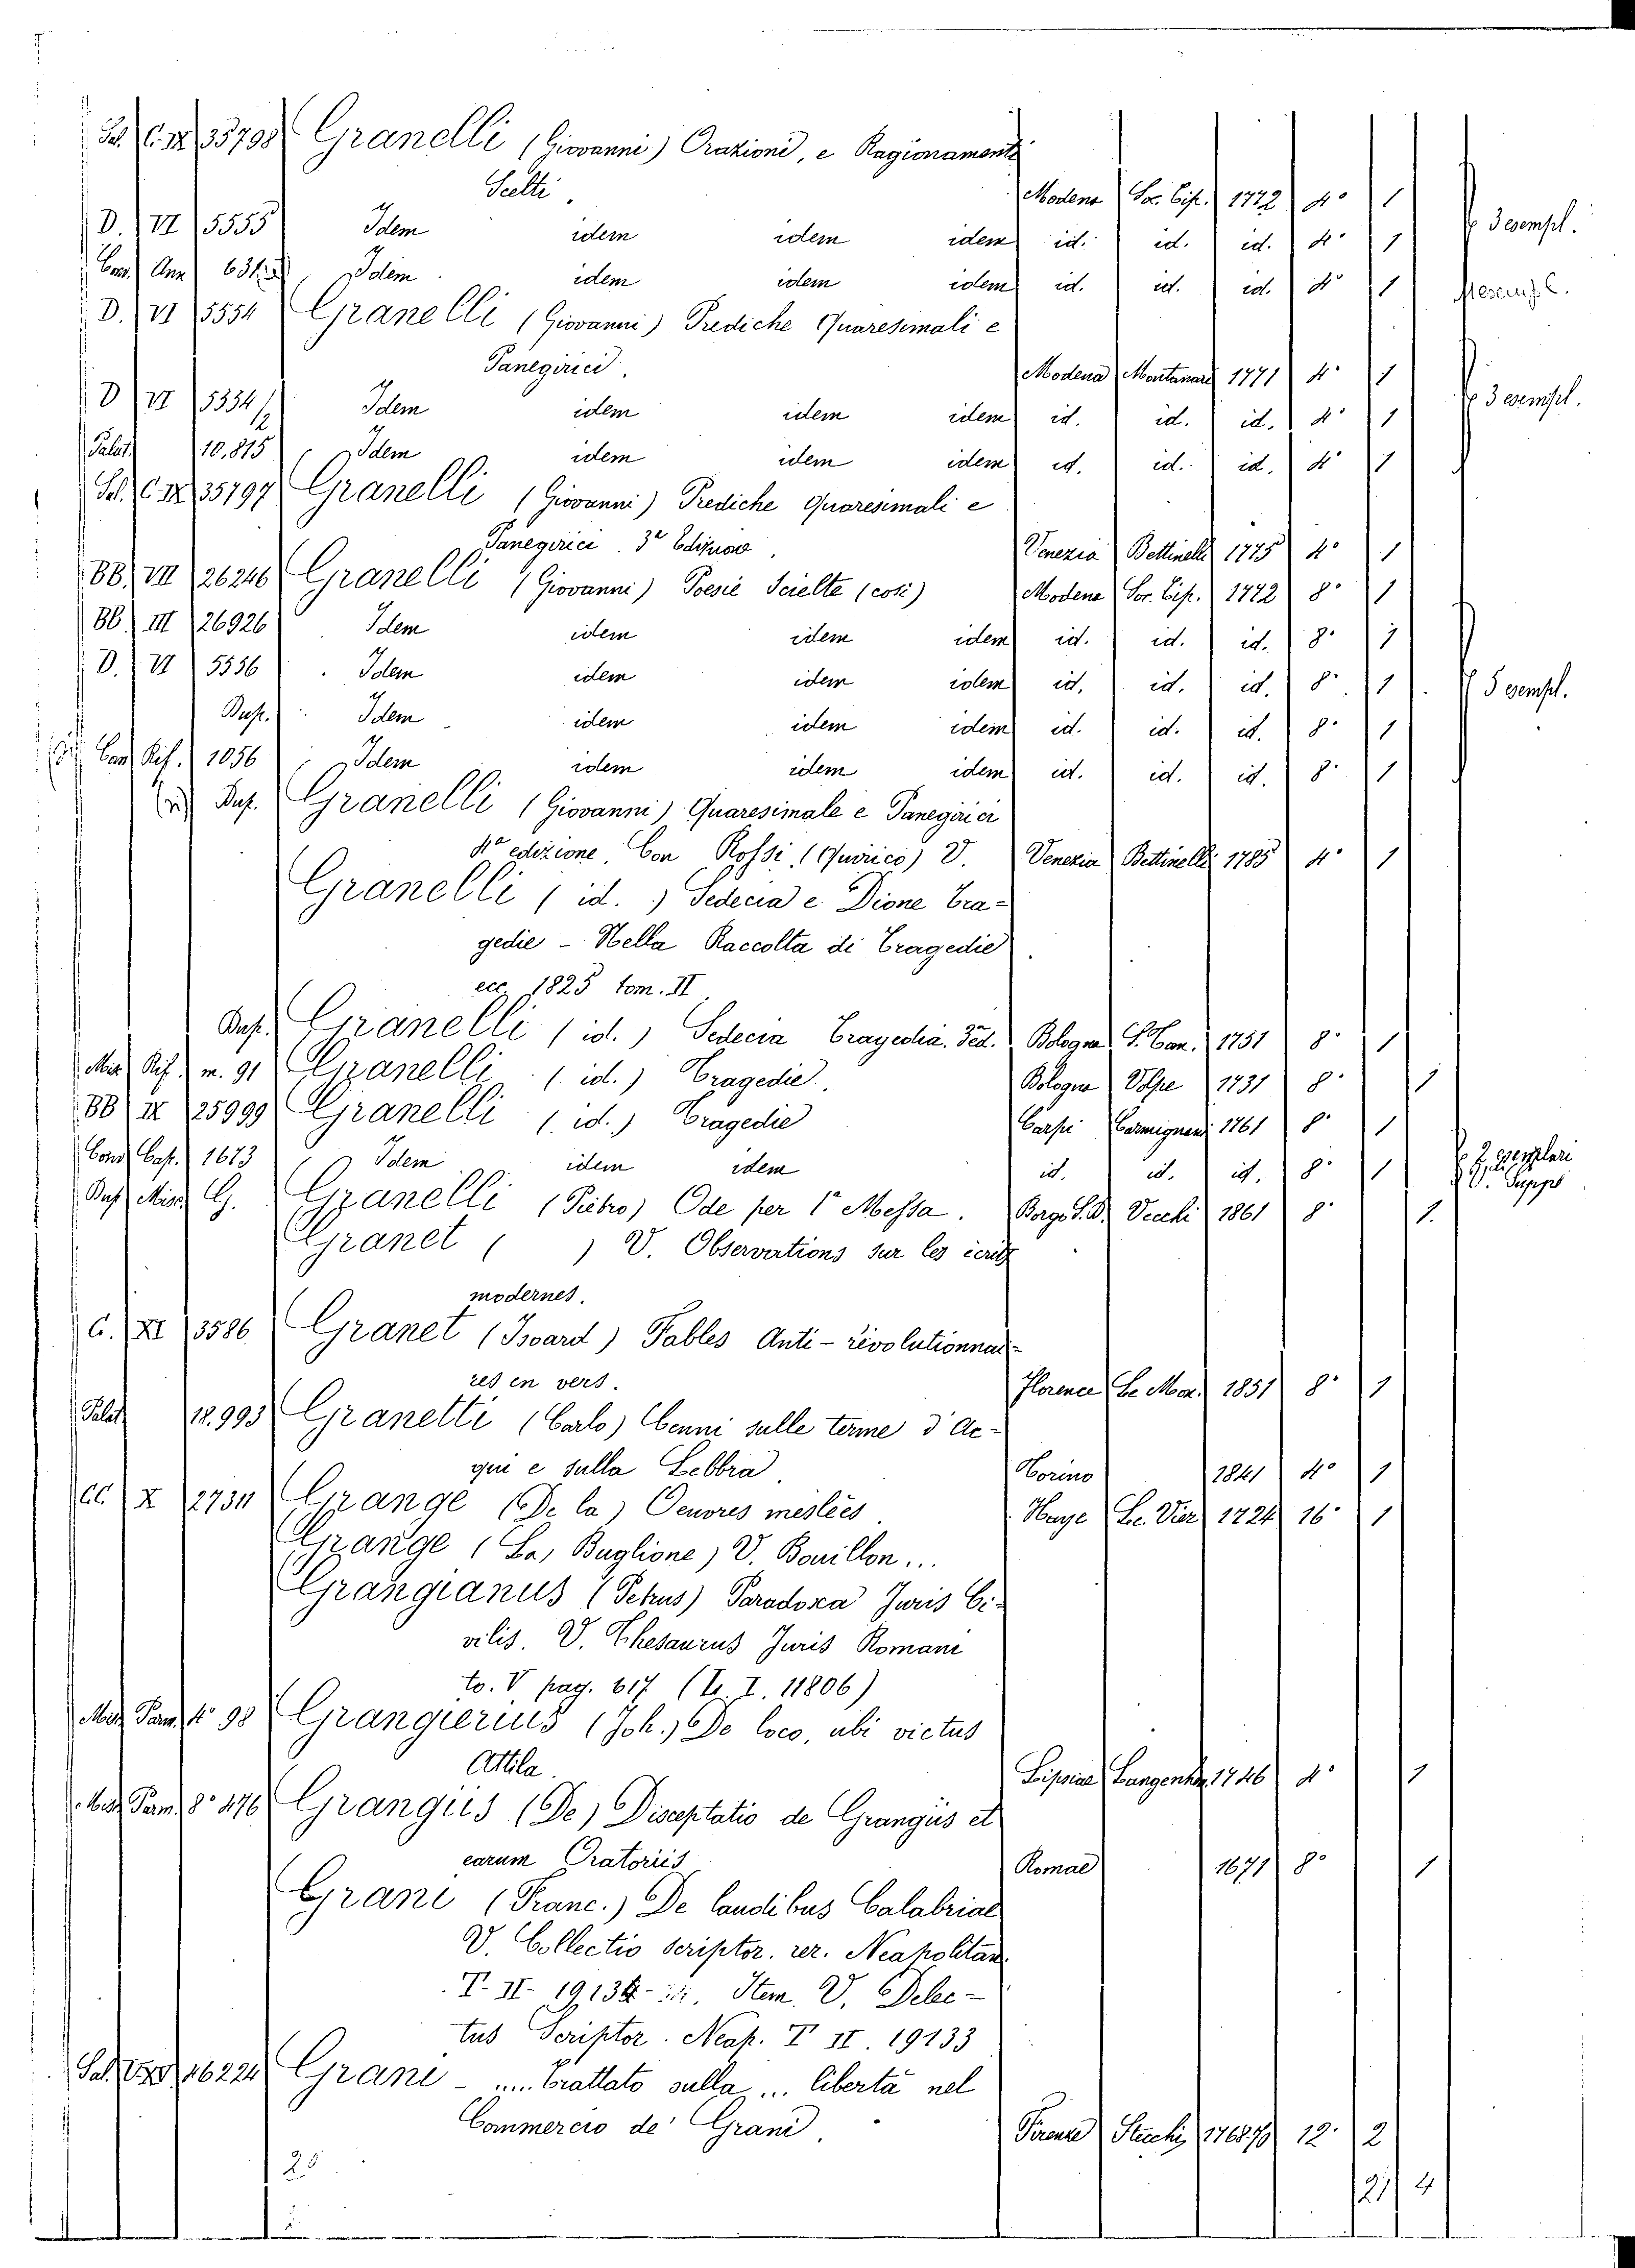 Granelli (Giovanni) Orazioni, e Ragionamenti
Scelti. Modena Soc. Tip. 1772 4º 1
D. VI 5555 Idem idem idem idem id. id. id. 4º 1 3 esempl.
Idem idem idem idem id. id. id. 4º 1
D. VI 5554 Granelli (Giovanni) Prediche Quaresimali e
Panegirici. Modena Montanari 1771 4º 1
D VI Idem idem idem idem id. id. id. 4º 1 3 esempl.
Palat. 10.815 Idem idem idem idem id. id. id. 4º 1
35797 Granelli (Giovanni) Prediche Quaresimali e
Panegirici. 3ª Edizione. Venezia Bettinelli 1775 4º 1
BB. VII 26246 Granelli (Giovanni) Poesie Scielte (così) Modena Soc. Tip. 1772 8º 1
BB. III 26926 Idem idem idem idem id. id. id. 8º 1
D. VI 5556 Idem idem idem idem id. id. id. 8º 1 5 esempl.
Idem idem idem idem id. id. id. 8º 1
1056 Idem idem idem idem id. id. id. 8º 1
Granelli (Giovanni) Quaresimale e Panegirici
4ª edizione. Con Rossi (Quirico) V. Venezia Bettinelli 1785 4º 1
Granelli (id.) Sedecia e Dione Tra=
gedie - Nella Raccolta di Tragedie
ecc. 1825 tom. II.
Granelli (id.) Sedecia Tragedia. Bologna 1731 8º 1
m. 91 Granelli (id.) Tragedie. Bologna Volpe 1731 8º 1
BB IX 25999 Granelli (id.) Tragedie Carpi Carmignani 1761 8º 1
1673 Idem idem idem id. id. id. 8º 1 2 esemplari
Granelli (Pietro) Ode per 1ª Messa. Borgo S.D. Vecchi 1861 8º 1.
Granet ( ) V. Observations sur les écrits
modernes.
G. XI 3586 Granet (Isoard) Fables Anti-révolutionnai=
res en vers. Florence Le Mon. 1851 8º 1
Palat 18.993 Granetti (Carlo) Cenni sulle terme d'Ac=
qui e sulla Lebbra. Torino 1841 4º 1
CC X 2731 Grange (De la) Oeuvres meslées. Haye Le Vier 1724 16º 1
Grange (La, Buglione) V. Bouillon...
Grangianus (Petrus) Paradoxa Juris Ci=
vilis. V. Thesaurus Juris Romani
to. V pag. 617 (I. 11806)
Misc. Parm. 4º 98 Grangierius (Joh.) De loco, ubi victus
Attila. Lipsiae Langenhem. 1746 4º 1
Misc. Parm. 8º 476 Grangiis (De) Disceptatio de Grangiis et
earum Oratoriis. Romae 1671 8º 1
Grani (Franc.) De laudibus Calabriae
V. Collectio scriptor. rer. Neapolitan.
T. II- Item. V. Delec-
tus Scriptor. Neap. T II. 19133
Grani - .... Trattato sulla ... libertà nel
Commercio de' Grani. Firenze Stecchi 12º 2
25 21 4